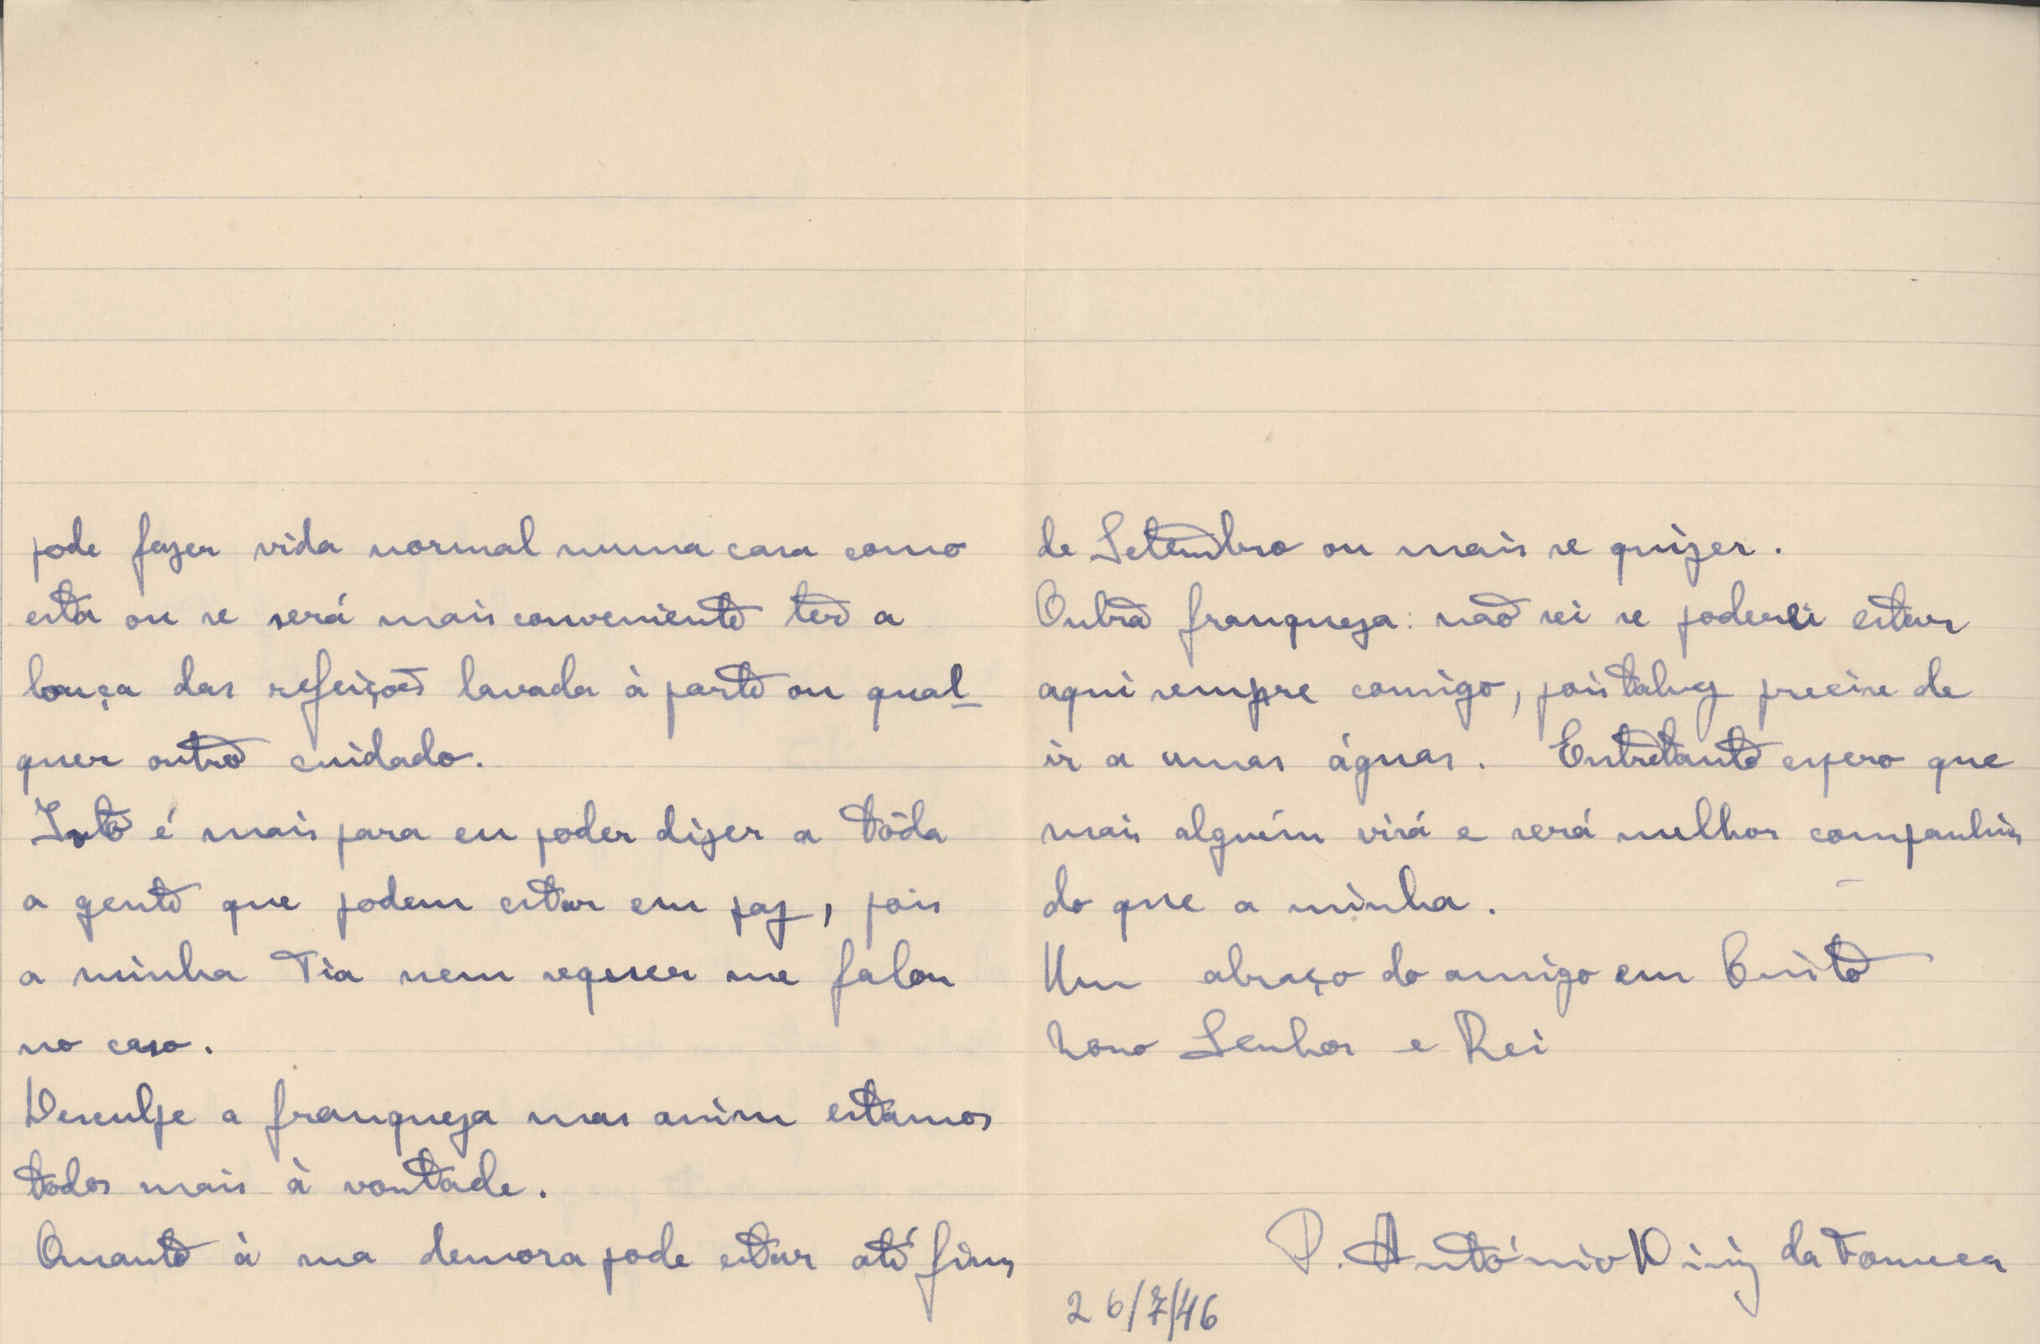 pode fazer vida normal numa casa como
esta ou se será mais conveniente ter a
louça das refeições lavada à parte ou qual-
quer outro cuidado.
Isto é mais para eu poder dizer a tôda
a gente que podem estar em paz, pois
a minha Tia nem sequer me falou
no caso.
Desculpe a franqueza mas assim estamos
todos mais à vontade.
Quanto à sua demora pode estar até fins
de Setembro ou mais se quizer.
Outra franqueza: não sei se poderei estar
aqui sempre comigo, pois talvez precise de
ir a umas águas. Entretanto espero que
mais alguém virá e será melhor companhia
do que a minha.
Um abraço do amigo em Cristo
Nosso Senhor e Rei
P. António Diniz da Fonseca
26/7/46